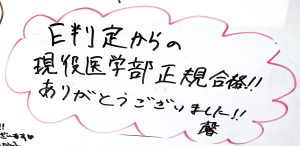 E判定からの
現役医学部正規合格!!
ありがとうございました!!
馨